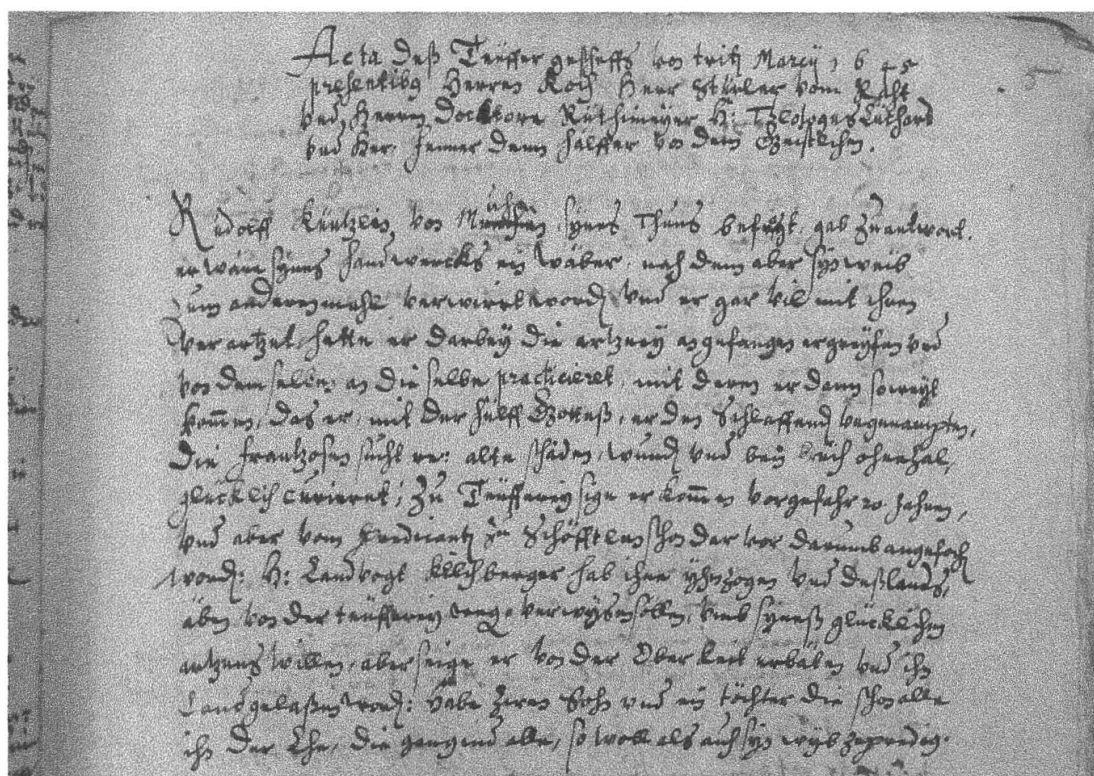 Acta deß Teüffer geschefts von tritt Marcÿ 1645
presentibus Herren Koch Herr Stürler vom Raht
vnd Herren Doctore Rüthimeyer H: Lüthard
vnd Her. Jenner dem hälffer von dem Geistlichen.
Rudolff Küntzlin, von Muchen synes Thuns befragt, gab zu antwort,
er ware synes handwercks ein wäber, nach dem aber syn weib
zum anderen mahl verwirrt word vnd er gar vil mit ihren
verartznet, hette er darbey die artzney angefangen ergreyfen vnd
von demselben an die selbe practicieret, mit deren er dann so weyt
kommen, das er, mit der hülff Gottes, er den Schlaffend
die frantzosen sucht alte schäden, wund vnd bein brüch
glücklich curieret; Zu Teüfferey sige er kommen vor gefahr 20 Jahren,
vnd aber vom predicanten zu Schöfftlen schon dar vor darumb angefoch
word: H: Landvogt Kilchberger hab ihne ynzogen vnd deßlands,
eben von der teüfferey wege verwysen sollen, vmb syneß glücklichen
artznens willen, aber seige er von der Oberkeit erbäten vnd ihn
Land gelaßen word: Habe zween Sohn vnd ein töchter die schon alle
ihn der Ehe, die gangind alle, so woll als auch syn wyb ze predig.